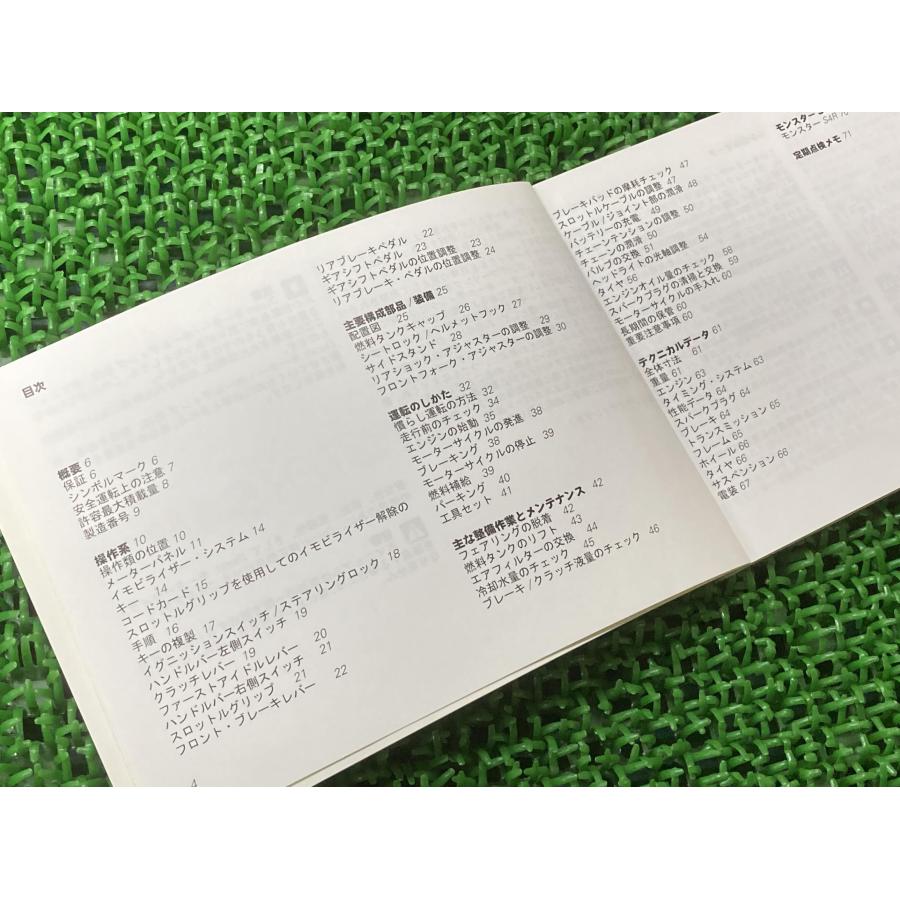 目次
概要 6
保証 6
シンボルマーク 6
安全運転上の注意 7
許容最大積載量 8
製造番号 9
操作系 10
操作類の位置 10
メーターパネル 11
イモビライザー・システム 14
キー 14
コードカード 15
スロットルグリップを使用してのイモビライザー解除の
手順 16
キーの複製 17
イグニッションスイッチ/ステアリングロック 18
ハンドルバー左側スイッチ 19
クラッチレバー 19
ファーストアイドルレバー 20
ハンドルバー右側スイッチ 21
スロットルグリップ 21
フロント・ブレーキレバー 22
リアブレーキペダル 22
ギアシフトペダル 23
ギアシフトペダルの位置調整 23
リアブレーキ・ペダルの位置調整 24
主要構成部品/装備 25
配置図 25
燃料タンクキャップ 26
シートロック/ヘルメットフック 27
サイドスタンド 28
リアショック・アジャスターの調整 29
フロントフォーク・アジャスターの調整 30
運転のしかた 32
慣らし運転の方法 32
走行前のチェック 34
エンジンの始動 35
モーターサイクルの発進 38
ブレーキング 38
モーターサイクルの停止 39
燃料補給 39
パーキング 40
工具セット 41
主な整備作業とメンテナンス 42
フェアリングの脱着 42
燃料タンクのリフト 43
エアフィルターの交換 44
冷却水量のチェック 45
ブレーキ/クラッチ液量のチェック 46
4
ブレーキパッドの摩耗チェック 47
スロットルケーブルの調整 47
ケーブル/ジョイント部の潤滑 48
バッテリーの充電 49
チェーンテンションの調整 50
チェーンの潤滑 50
バルブの交換 51
ヘッドライトの光軸調整 54
タイヤ 56
エンジンオイル量のチェック 58
スパークプラグの清掃と交換 59
モーターサイクルの手入れ 59
長期間の保管 60
重要注意事項 60
テクニカルデータ 61
全体寸法 61
重量 61
エンジン 63
タイミング・システム 63
性能データ 64
スパークプラグ 64
ブレーキ 64
トランスミッション 65
フレーム 65
ホイール 66
タイヤ 66
サスペンション 66
電装 67
モンスター
モンスター S4R 70
定期点検メモ 71